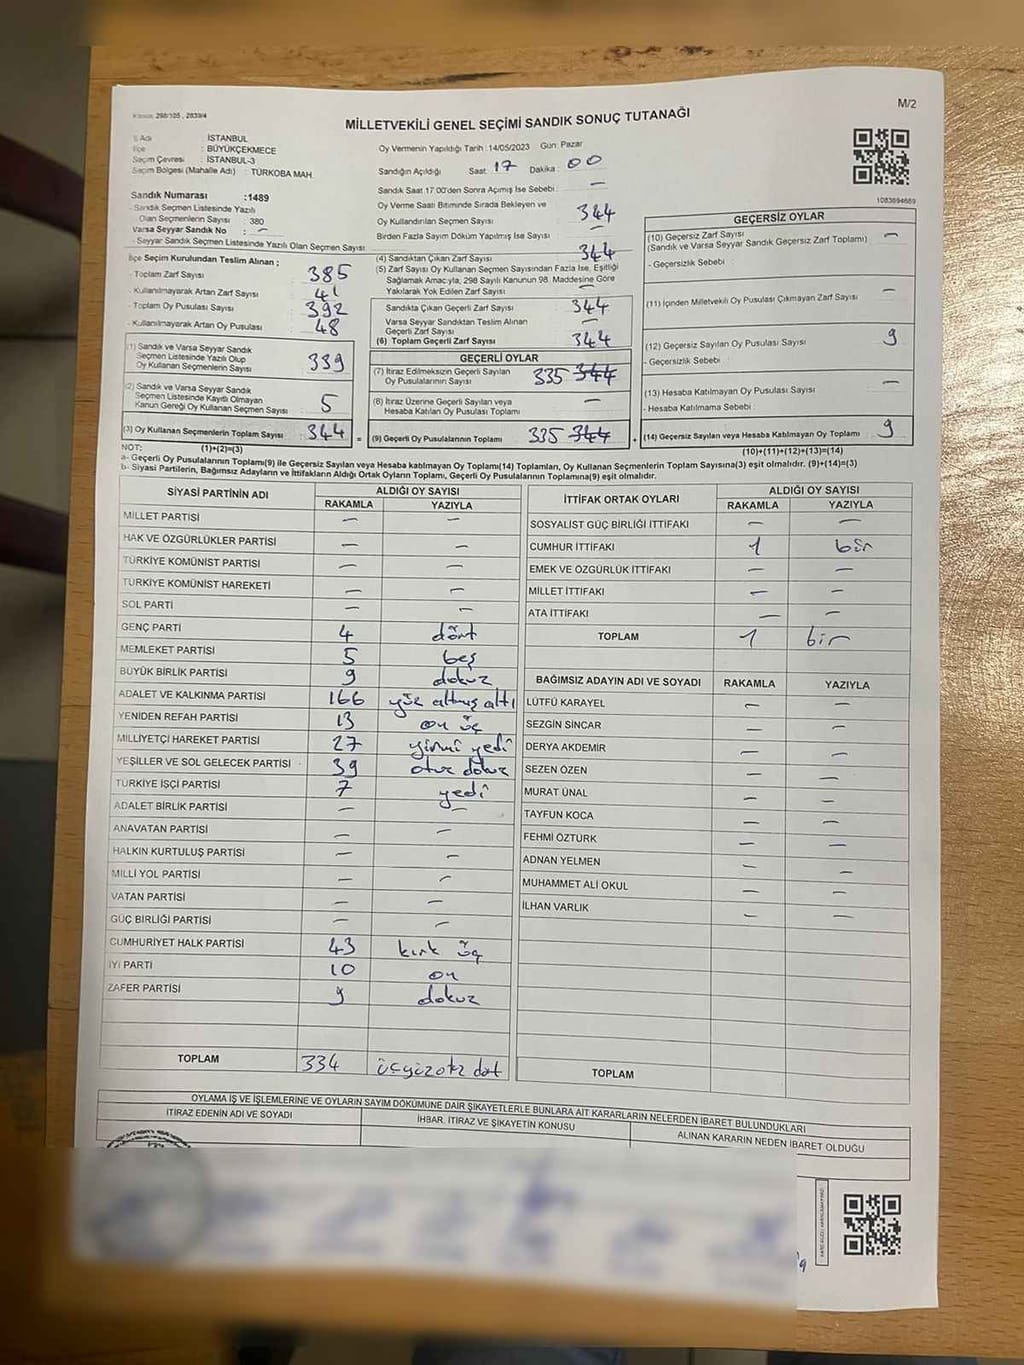 Kanun: 298/105 , 2839/4
M/2
MİLLETVEKİLİ GENEL SEÇİMİ SANDIK SONUÇ TUTANAĞI
İl Adı : İSTANBUL
İlçe : BÜYÜKÇEKMECE
Seçim Çevresi : İSTANBUL-3
Seçim Bölgesi (Mahalle Adı) : TÜRKOBA MAH.
Oy Vermenin Yapıldığı Tarih :14/05/2023 Gün: Pazar
Sandığın Açıldığı Saat: 17 Dakika : 00
Sandık Saat 17.00'den Sonra Açımış İse Sebebi : —
Sandık Numarası :1489
- Sandık Seçmen Listesinde Yazılı
Olan Seçmenlerin Sayısı : 380
Varsa Seyyar Sandık No : —
- Seyyar Sandık Seçmen Listesinde Yazılı Olan Seçmen Sayısı:
Oy Verme Saati Bitiminde Sırada Bekleyen ve
Oy Kullandırılan Seçmen Sayısı : 344
Birden Fazla Sayım Döküm Yapılmış İse Sayısı : —
1083694669
İlçe Seçim Kurulundan Teslim Alınan ;
- Toplam Zarf Sayısı : 385
- Kullanılmayarak Artan Zarf Sayısı : 41
- Toplam Oy Pusulası Sayısı : 392
- Kullanılmayarak Artan Oy Pusulası : 48
(1) Sandık ve Varsa Seyyar Sandık
Seçmen Listesinde Yazılı Olup
Oy Kullanan Seçmenlerin Sayısı 339
(2) Sandık ve Varsa Seyyar Sandık
Seçmen Listesinde Kayıtlı Olmayan
Kanun Gereği Oy Kullanan Seçmen Sayısı 5
(3) Oy Kullanan Seçmenlerin Toplam Sayısı 344 =
(4) Sandıktan Çıkan Zarf Sayısı : 344
(5) Zarf Sayısı Oy Kullanan Seçmen Sayısından Fazla İse, Eşitliği
Sağlamak Amacıyla, 298 Sayılı Kanunun 98. Maddesine Göre
Yakılarak Yok Edilen Zarf Sayısı : —
Sandıkta Çıkan Geçerli Zarf Sayısı : 344
Varsa Seyyar Sandıktan Teslim Alınan
Geçerli Zarf Sayısı : —
(6) Toplam Geçerli Zarf Sayısı : 344
GEÇERLİ OYLAR
(7) İtiraz Edilmeksizin Geçerli Sayılan
Oy Pusulalarının Sayısı : 335 344
(8) İtiraz Üzerine Geçerli Sayılan veya
Hesaba Katılan Oy Pusulası Toplamı : —
(9) Geçerli Oy Pusulalarının Toplamı : 335 344 +
GEÇERSİZ OYLAR
(10) Geçersiz Zarf Sayısı : —
(Sandık ve Varsa Seyyar Sandık Geçersiz Zarf Toplamı)
- Geçersizlik Sebebi :
(11) İçinden Milletvekili Oy Pusulası Çıkmayan Zarf Sayısı : —
(12) Geçersiz Sayılan Oy Pusulası Sayısı : 9
- Geçersizlik Sebebi :
(13) Hesaba Katılmayan Oy Pusulası Sayısı : —
- Hesaba Katılmama Sebebi :
(14) Geçersiz Sayılan veya Hesaba Katılmayan Oy Toplamı : 9
NOT: (1)+(2)=(3) (10)+(11)+(12)+(13)=(14)
a- Geçerli Oy Pusulalarının Toplamı(9) ile Geçersiz Sayılan veya Hesaba katılmayan Oy Toplamı(14) Toplamları, Oy Kullanan Seçmenlerin Toplam Sayısına(3) eşit olmalıdır. (9)+(14)=(3)
b- Siyasi Partilerin, Bağımsız Adayların ve İttifakların Aldığı Ortak Oyların Toplamı, Geçerli Oy Pusulalarının Toplamına(9) eşit olmalıdır.
SİYASİ PARTİNİN ADI ALDIĞI OY SAYISI
RAKAMLA YAZIYLA
MİLLET PARTİSİ — —
HAK VE ÖZGÜRLÜKLER PARTİSİ — —
TÜRKİYE KOMÜNİST PARTİSİ — —
TÜRKİYE KOMÜNİST HAREKETİ — —
SOL PARTİ — —
GENÇ PARTİ 4 dört
MEMLEKET PARTİSİ 5 beş
BÜYÜK BİRLİK PARTİSİ 9 dokuz
ADALET VE KALKINMA PARTİSİ 166 yüz altmış altı
YENİDEN REFAH PARTİSİ 13 on üç
MİLLİYETÇİ HAREKET PARTİSİ 27 yirmi yedi
YEŞİLLER VE SOL GELECEK PARTİSİ 39 otuz dokuz
TÜRKİYE İŞÇİ PARTİSİ 7 yedi
ADALET BİRLİK PARTİSİ — —
ANAVATAN PARTİSİ — —
HALKIN KURTULUŞ PARTİSİ — —
MİLLİ YOL PARTİSİ — —
VATAN PARTİSİ — —
GÜÇ BİRLİĞİ PARTİSİ — —
CUMHURİYET HALK PARTİSİ 43 kırk üç
İYİ PARTİ 10 on
ZAFER PARTİSİ 9 dokuz
TOPLAM 334 üçyüzotz dört
İTTİFAK ORTAK OYLARI ALDIĞI OY SAYISI
RAKAMLA YAZIYLA
SOSYALİST GÜÇ BİRLİĞİ İTTİFAKI — —
CUMHUR İTTİFAKI 1 bir
EMEK VE ÖZGÜRLÜK İTTİFAKI — —
MİLLET İTTİFAKI — —
ATA İTTİFAKI — —
TOPLAM 1 bir
BAĞIMSIZ ADAYIN ADI VE SOYADI RAKAMLA YAZIYLA
LÜTFÜ KARAYEL — —
SEZGİN SİNCAR — —
DERYA AKDEMİR — —
SEZEN ÖZEN — —
MURAT ÜNAL — —
TAYFUN KOCA — —
FEHMİ ÖZTÜRK — —
ADNAN YELMEN — —
MUHAMMET ALİ OKUL — —
İLHAN VARLIK — —
TOPLAM
OYLAMA İŞ VE İŞLEMLERİNE VE OYLARIN SAYIM DÖKÜMÜNE DAİR ŞİKAYETLERLE BUNLARA AİT KARARLARIN NELERDEN İBARET BULUNDUKLARI
İTİRAZ EDENİN ADI VE SOYADI İHBAR, İTİRAZ VE ŞİKAYETİN KONUSU ALINAN KARARIN NEDEN İBARET OLDUĞU